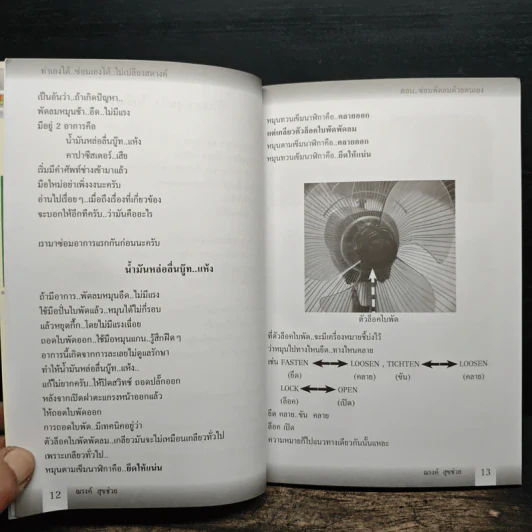 ทำเองได้..ซ่อมเองได้..ไม่เปลืองสตางค์
เป็นอันว่า..ถ้าเกิดปัญหา..
พัดลมหมุนช้า..อืด..ไม่มีแรง
มีอยู่ 2 อาการคือ
น้ำมันหล่อลื่นบู๊ท..แห้ง
คาปาซิสเตอร์..เสีย
เริ่มมีคำศัพท์ช่างเข้ามาแล้ว
มือใหม่อย่าเพิ่งงงนะครับ
อ่านไปเรื่อยๆ..เมื่อถึงเรื่องที่เกี่ยวข้อง
จะบอกให้อีกทีครับ..ว่ามันคืออะไร
เรามาซ่อมอาการแรกกันก่อนนะครับ
น้ำมันหล่อลื่นบู๊ท..แห้ง
ถ้ามีอาการ..พัดลมหมุนอืด..ไม่มีแรง
ใช้มือปั่นใบพัดแล้ว..หมุนได้ไม่กี่รอบ
แล้วหยุดกึ้ก..โดยไม่มีแรงเฉื่อย
ถอดใบพัดออก..ใช้มือหมุนแกน..รู้สึกฝืดๆ
อาการนี้เกิดจากการละเลยไม่ดูแลรักษา
ทำให้น้ำมันหล่อลื่นบู๊ท..แห้ง..
แก้ไม่ยากครับ..ให้ปิดสวิทซ์ ถอดปลั๊กออก
หลังจากเปิดฝาตะแกรงหน้าออกแล้ว
ให้ถอดใบพัดออก
การถอดใบพัด..มีเทคนิคอยู่ว่า
ตัวล็อคใบพัดพัดลม..เกลียวมันจะไม่เหมือนเกลียวทั่วไป
เพราะเกลียวทั่วไป..
หมุนตามเข็มนาฬิกาคือ..ยึดให้แน่น
12 ณรงค์ สุขช่วย
ตอน..ซ่อมพัดลมด้วยตนเอง
หมุนทวนเข็มนาฬิกาคือ..คลายออก
แต่เกลียวตัวล็อคใบพัดพัดลม
หมุนตามเข็มนาฬิกาคือ..คลายออก
หมุนทวนเข็มนาฬิกาคือ..ยึดให้แน่น
ตัวล็อคใบพัด
ที่ตัวล็อคใบพัด..จะมีเครื่องหมายชี้บ่งไว้
ว่าหมุนไปทางไหนยึด..ทางไหนคลาย
เช่น FASTEN LOOSEN , TICHTEN LOOSEN
(ยึด) (คลาย) (ขัน) (คลาย)
LOCK OPEN
(ล็อค) (เปิด)
ยึด คลาย..ขัน คลาย
ล็อก เปิด
ความหมายก็ไปแนวทางเดียวกันนั้นแหละ
ณรงค์ สุขช่วย 13